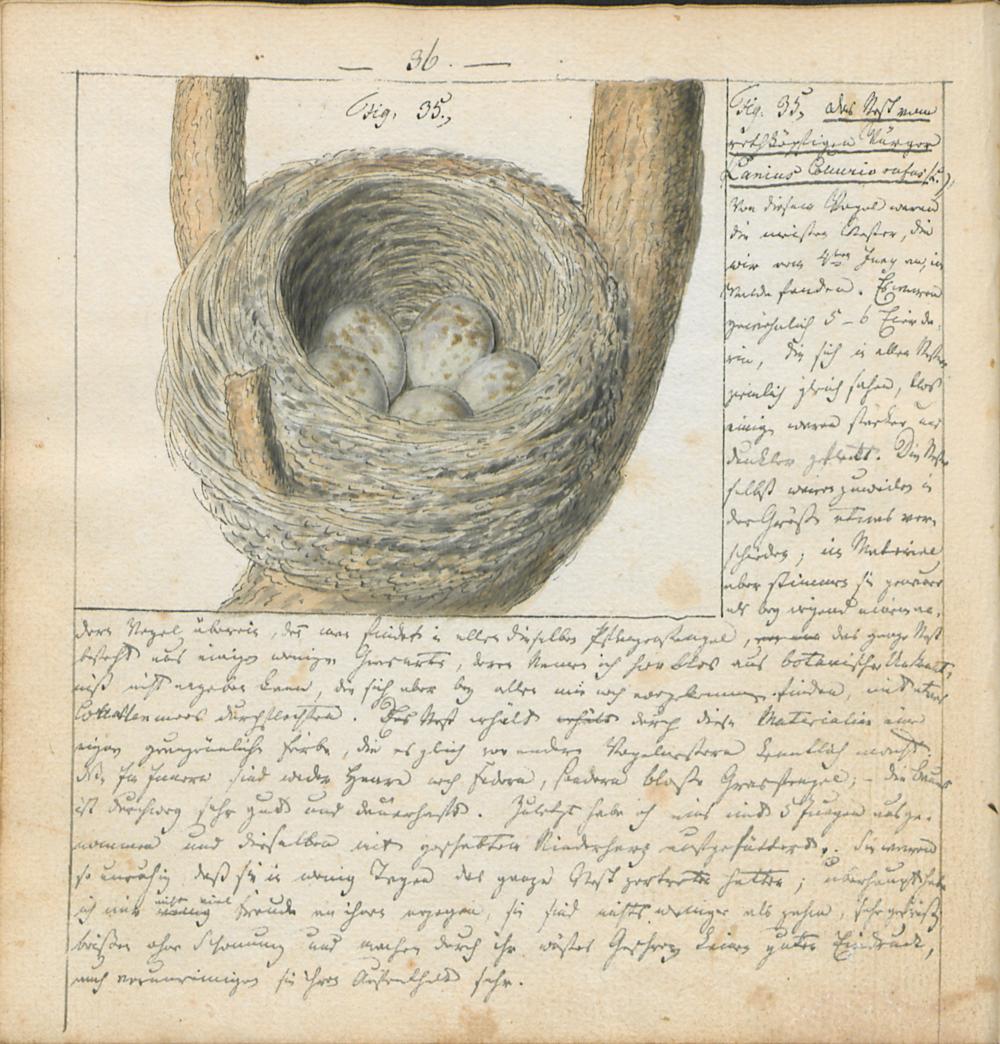 — 36. —
Fig. 35.,
Fig. 35, das Nest vom
rothköpfigen Würger
Lanius Collurio rufus (L.)
Von diesem Vogel waren
die meisten Nester, die
wir vom 4ten Juny an, im
Walde fanden. Es waren
gewöhnlich 5 – 6 Eier da-
rin, die sich in allen Nestern
ziemlich gleich sahen, blos
einige waren starker und
dunkler gefleckt. Die Nester
selbst waren zuweilen in
der Größe etwas ver-
schieden; im Material
aber stimmen sie genauer
als bey irgend einem an-
dern Vogel überein, den man findet in allen dieselben Pflanzenstengel, das ganze Nest
besteht aus einigen wenigen Grasarten, deren Namen ich hier blos aus botanischer Unkennt-
niß nicht angeben kann, die sich aber bey allen mir noch vorgekommenen finden, mit etwas
moos durchflochten. Das Nest erhält durch diese Materialien eine
eigene graugrünliche Farbe, die es gleich vor andern Vogelnestern kenntlich macht.
Im Innern sind weder Haare noch Federn, sondern bloße Grasstengel; – der Bau
ist durchweg sehr gut und dauerhaft. Zuletzt habe ich eins mit 5 Jungen ausge-
nommen und dieselben mit geschabtem Rinderherz aufgefüttert. Sie waren
so unruhig daß sie in wenig Tagen das ganze Nest zertreten hatten; überhaupt habe
ich mir nicht viel Freude an ihnen erzogen, sie sind nichts weniger als zahm, sehr gefräßig
beißen ohne Schonung und machen durch ihr wüstes Geschrey keinen guten Eindruck,
auch verunreinigen sie ihren Aufenthalt sehr.